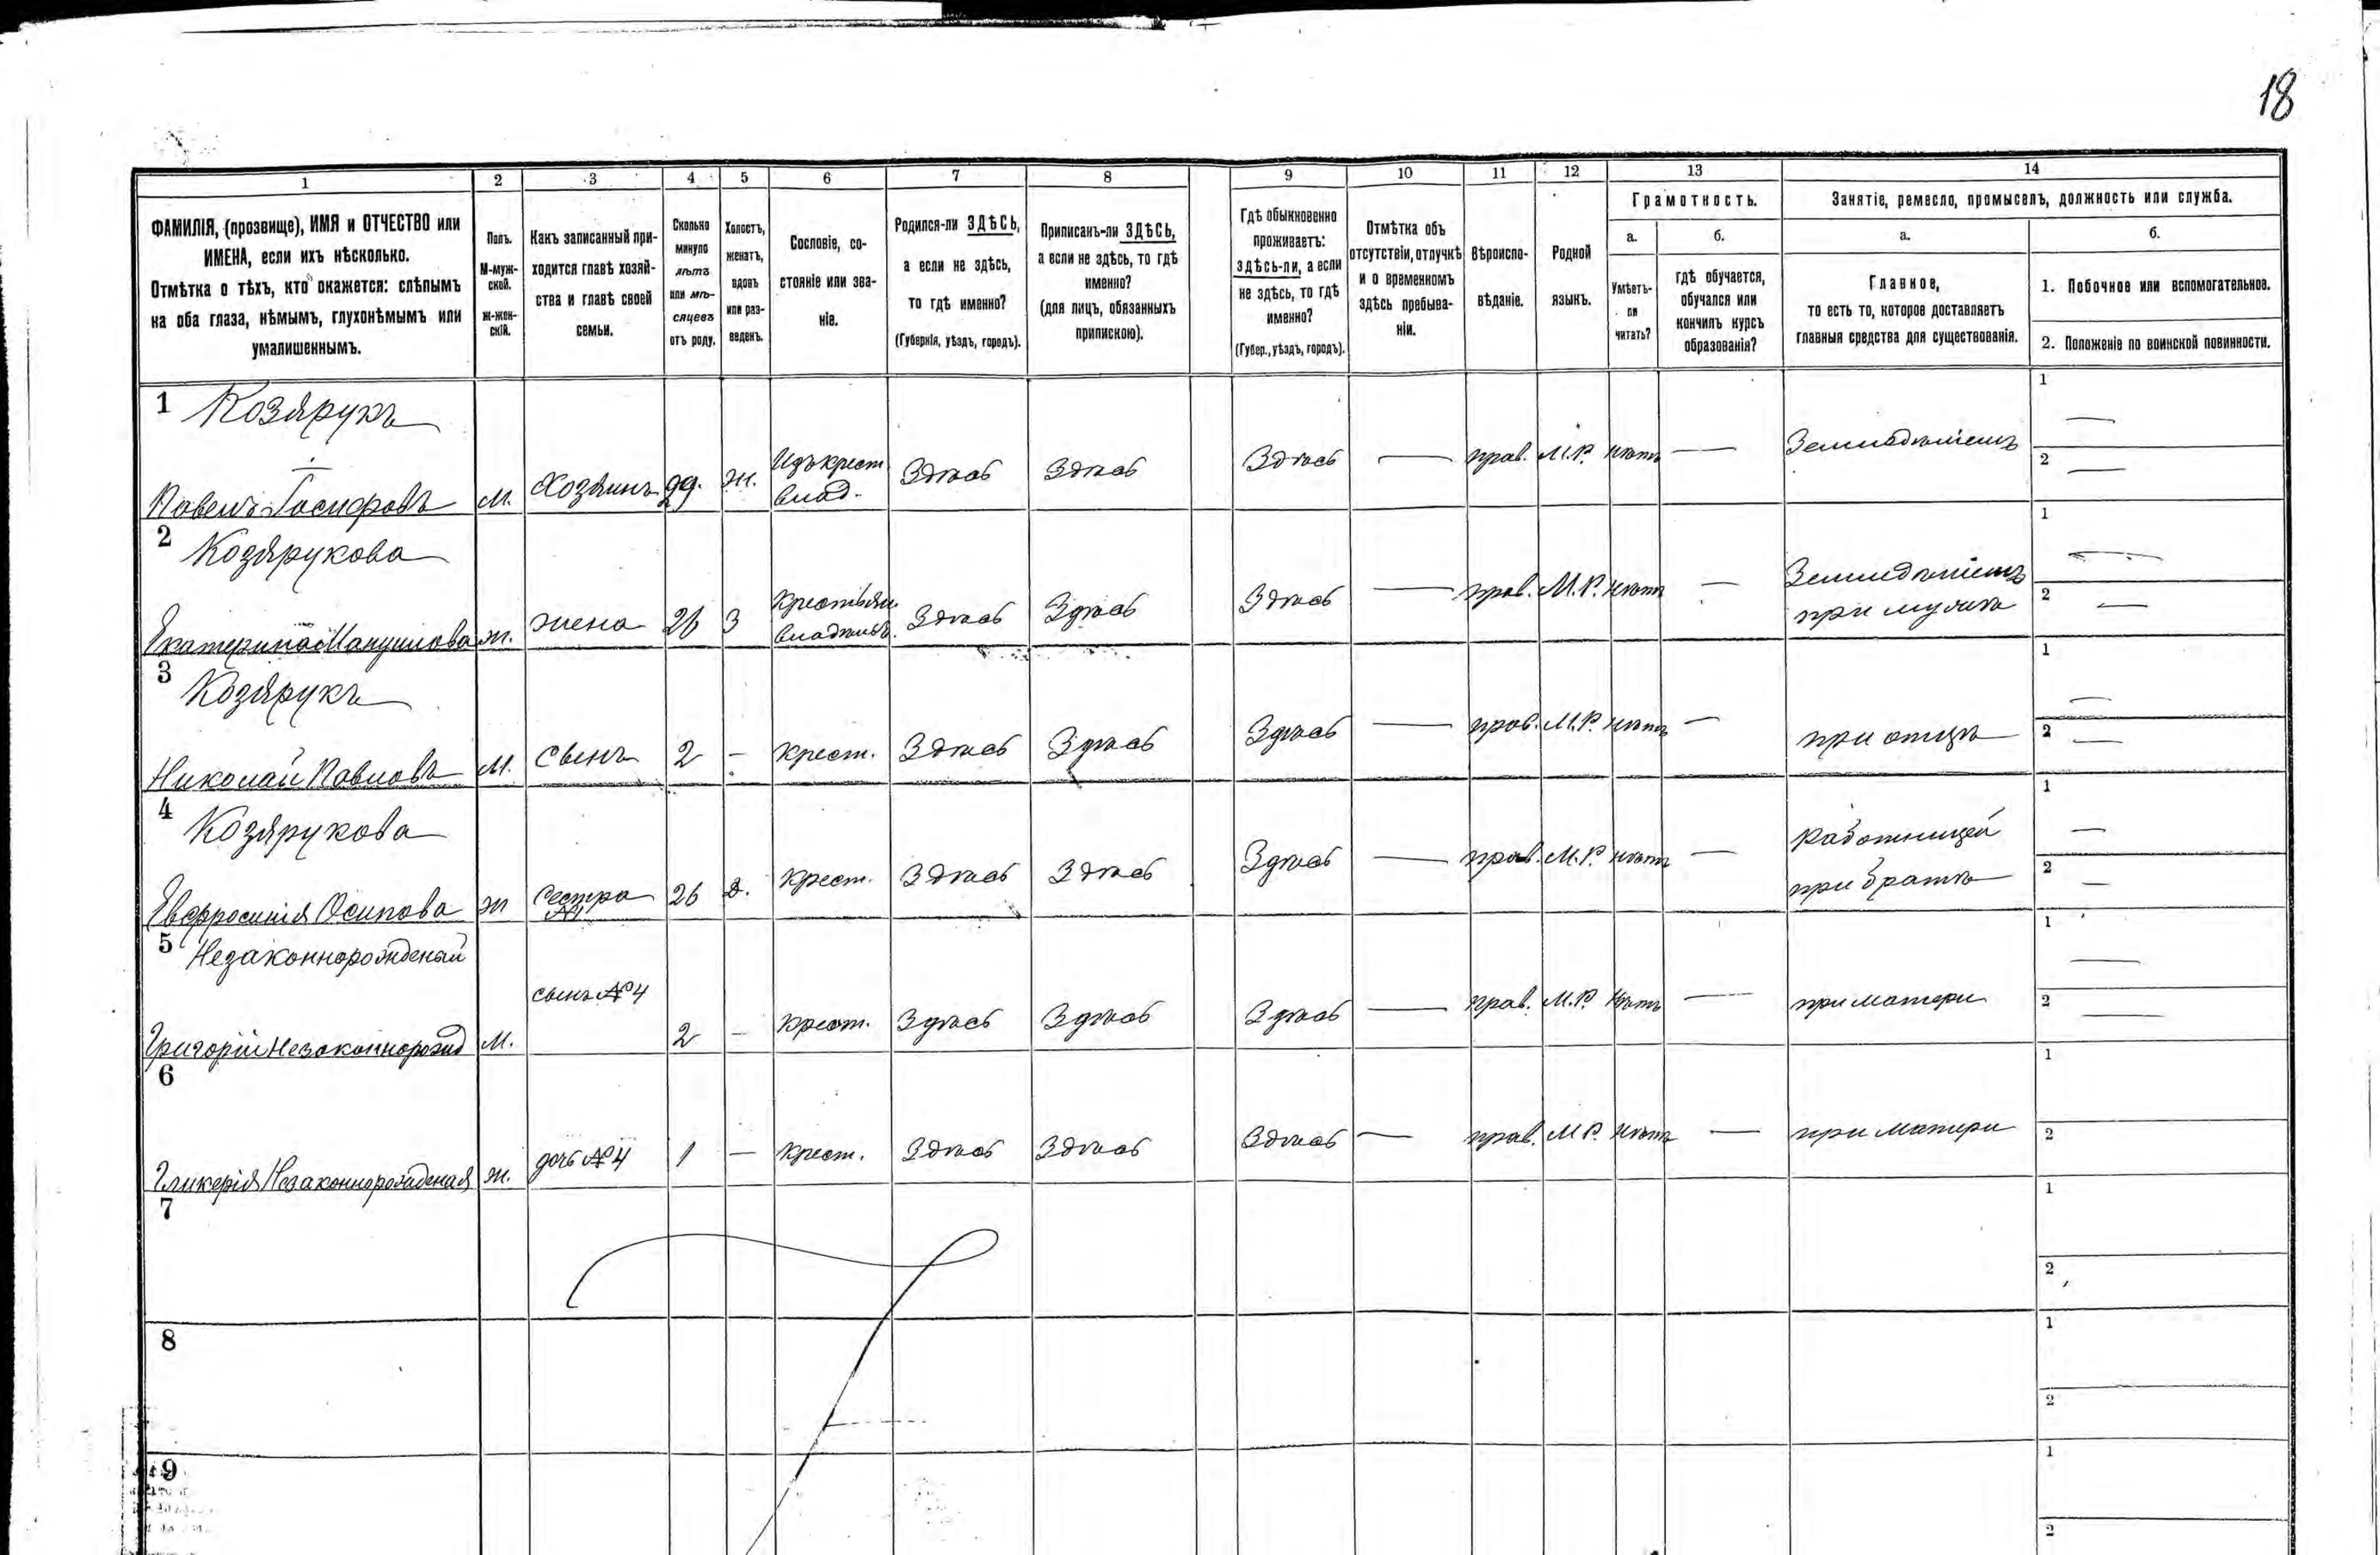 18
1 2 3 4 5 6 7 8 9 10 11 12 13 14
ФАМИЛІЯ, (прозвище), ИМЯ и ОТЧЕСТВО или
ИМЕНА, если ихъ нѣсколько.
Отмѣтка о тѣхъ, кто окажется: слѣпымъ
на оба глаза, нѣмымъ, глухонѣмымъ или
умалишеннымъ.
Полъ.
М-муж-
ской.
ж-жен-
скій.
Какъ записанный при-
ходится главѣ хозяй-
ства и главѣ своей
семьи.
Сколько
минуло
лѣтъ
или мѣ-
сяцевъ
отъ роду.
Холостъ,
женатъ,
вдовъ
или раз-
веденъ.
Сословіе, со-
стояніе или зва-
ніе.
Родился-ли ЗДѢСЬ,
а если не здѣсь,
то гдѣ именно?
(Губернія, уѣздъ, городъ).
Приписанъ-ли ЗДѢСЬ,
а если не здѣсь, то гдѣ
именно?
(для лицъ, обязанныхъ
припискою).
Гдѣ обыкновенно
проживаетъ:
здѣсь-ли, а если
не здѣсь, то гдѣ
именно?
(Губер., уѣздъ, городъ).
Отмѣтка объ
отсутствіи, отлучкѣ
и о временномъ
здѣсь пребыва-
ніи.
Вѣроиспо-
вѣданіе.
Родной
языкъ.
Грамотность.
а.
Умѣетъ-
ли
читать?
б.
гдѣ обучается,
обучался или
кончилъ курсъ
образованія?
Занятіе, ремесло, промыселъ, должность или служба.
а.
Главное,
то есть то, которое доставляетъ
главныя средства для существованія.
б.
1. Побочное или вспомогательное.
2. Положеніе по воинской повинности.
1 Козярукъ
Павелъ Іосифовъ М. Хозяинъ 29. ж. Изъ крест. влад. Здѣсь Здѣсь Здѣсь — прав. М.Р. нѣтъ — Земледѣліемъ 1 — 2 —
2 Козярукова
Екатерина ж. жена 26 З Крестьян. владѣльч. Здѣсь Здѣсь Здѣсь — прав. М.Р. нѣтъ — Земледѣліемъ при мужѣ 1 — 2 —
3 Козярукъ
Николай Павловъ М. сынъ 2 — крест. Здѣсь Здѣсь Здѣсь — прав. М.Р. нѣтъ — при отцѣ 1 — 2 —
4 Козярукова
Евфросинія Осипова ж сестра №1 26 д. крест. Здѣсь Здѣсь Здѣсь — прав. М.Р. нѣтъ — работницей при братѣ 1 — 2 —
5 Незаконнорожденый
Григорій Незаконнорожд М. сынъ №4 2 — крест. Здѣсь Здѣсь Здѣсь — прав. М.Р. нѣтъ — при матери 1 — 2 —
6
Гликерія Незаконнорожденая ж. дочь №4 1 — крест. Здѣсь Здѣсь Здѣсь — прав. М.Р. нѣтъ — при матери 1 2
7 1 2
8 1 2
9 1 2